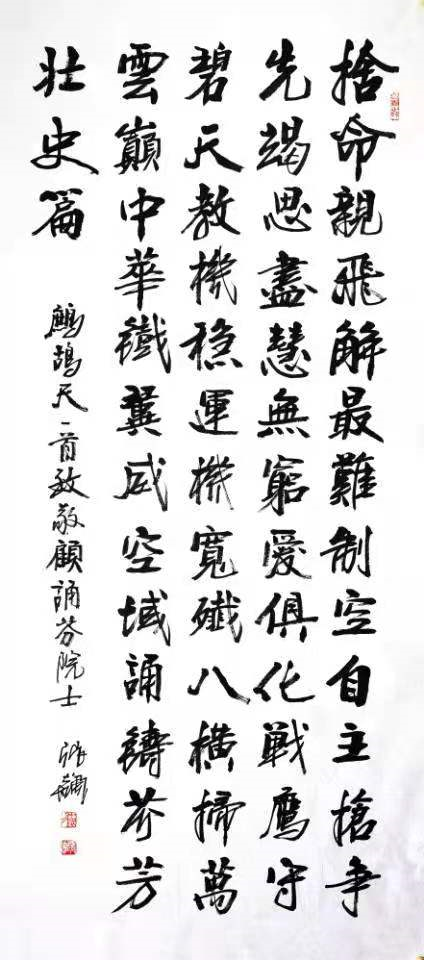 捨命親飛解最難制空自主搶爭
先竭思盡慧無窮愛俱化戦鷹守
碧天教機穏運機寬殲八橫掃萬
雲巔中華鐵翼威空域誦鑄芬芳
壯史篇
鷓鴣天一首致敬顧誦芬院士